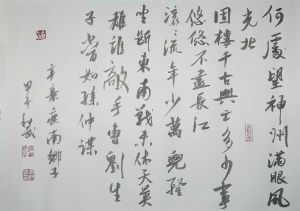 何處望神州滿眼風
光北
固樓千古興亡多少事
悠悠不盡長江
滾滾流年少萬兜鍪
坐斷東南戰未休天下英
雄誰敵手曹劉生
子當如孫仲謀
辛棄疾南鄉子
甲午秋